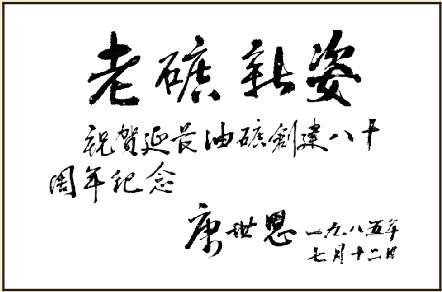 老矿新姿
祝贺延长油矿创建八十
周年纪念
康世恩 一九八五年
七月十二日